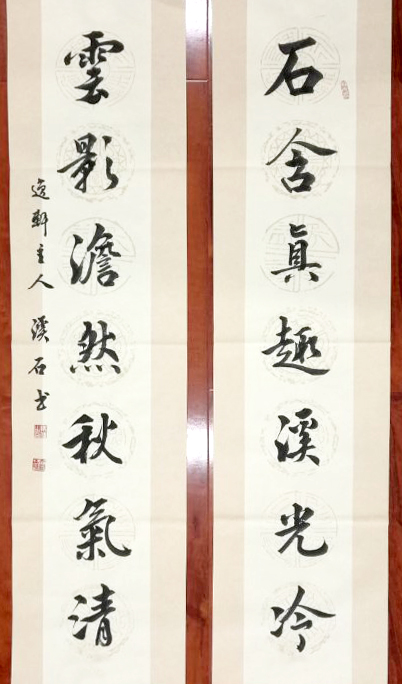 石舍真趣溪光冷
雲影澹然秋氣清
逸軒主人 溪石书